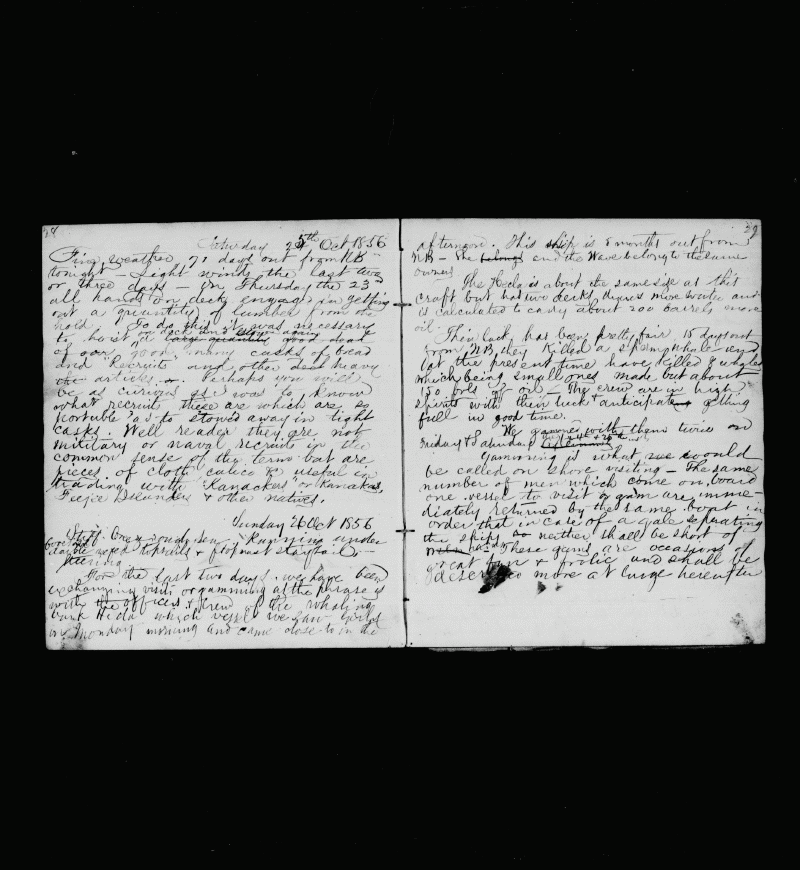 28
Saturday 25th Oct 1856
Fine weather, 71 days out from NB
tonight – Light winds the last two
or three days – on Thursday the 23rd
all hands on deck engaged in getting
out a quantity of lumber from the
hold. To do this it was necessary
to hoist on deck and stow again a large quantity good deal
of our good many casks of bread
and "Recruits" and other heavy
articles. Perhaps you will
be as curious as I was to know
what recruits these are which are so
portable as to stowed away in tight
casks. Well reader they are not
military or naval recruits in the
common sense of the term but are
pieces of cloth calico & useful in
trading with Kanackers or Kanakas,
Feejee Islanders & other natives.
Sunday 26 Oct 1856
Stiff breeze rough sea. Running under
double reefed topsails & ftopmast staysail
steering
For the last two days we have been
exchanging visits or gamming as the phrase is
with the officers & crew of the whaling
bark Hecla which vessel we saw first
on Monday morning and came close to in the
29
afternoon. This ship is 5 months out from
NB – She belongs and the Wave belong to the same
owners
The Hecla is about the same size as this
craft but has two decks, draws more water and
is calculated to carry about 200 barrels more
oil.
Their luck has been pretty fair 15 days out
from NB they killed a sperm whale and
at the present time have killed
which being small ones made but about
150 bbls of oil. The crew are in high
spirits with their luck & anticipate getting
full in good time.
We gammed with them twice on
Friday & Saturday
Gamming is what we would
be called on shore visiting – The same
number of men which come on board
one vessel to visit or gam are imme-
diately returned by the same boat in
order that in case of a gale separating
the ships so neither shall be short of
These gams are occasions of
great fun & frolic and shall be
described more at large hereafter